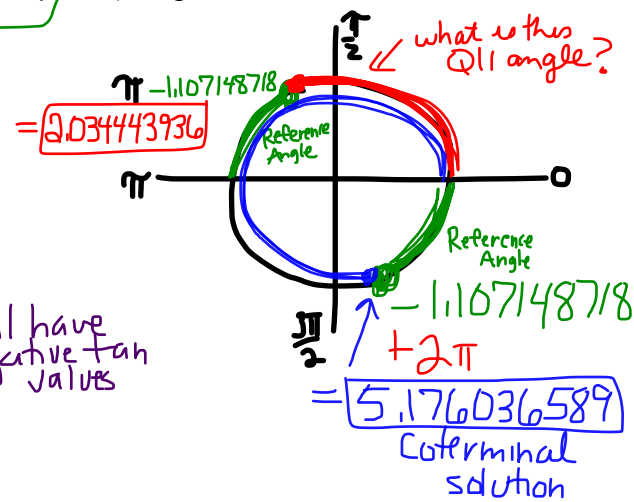 π/2
what is this
QII angle?
π -1.107148718
= 2.034443936
Reference
Angle
π
0
Reference
Angle
-1.107148718
3π/2
+2π
= 5.176036589
coterminal
solution
have
tan
values